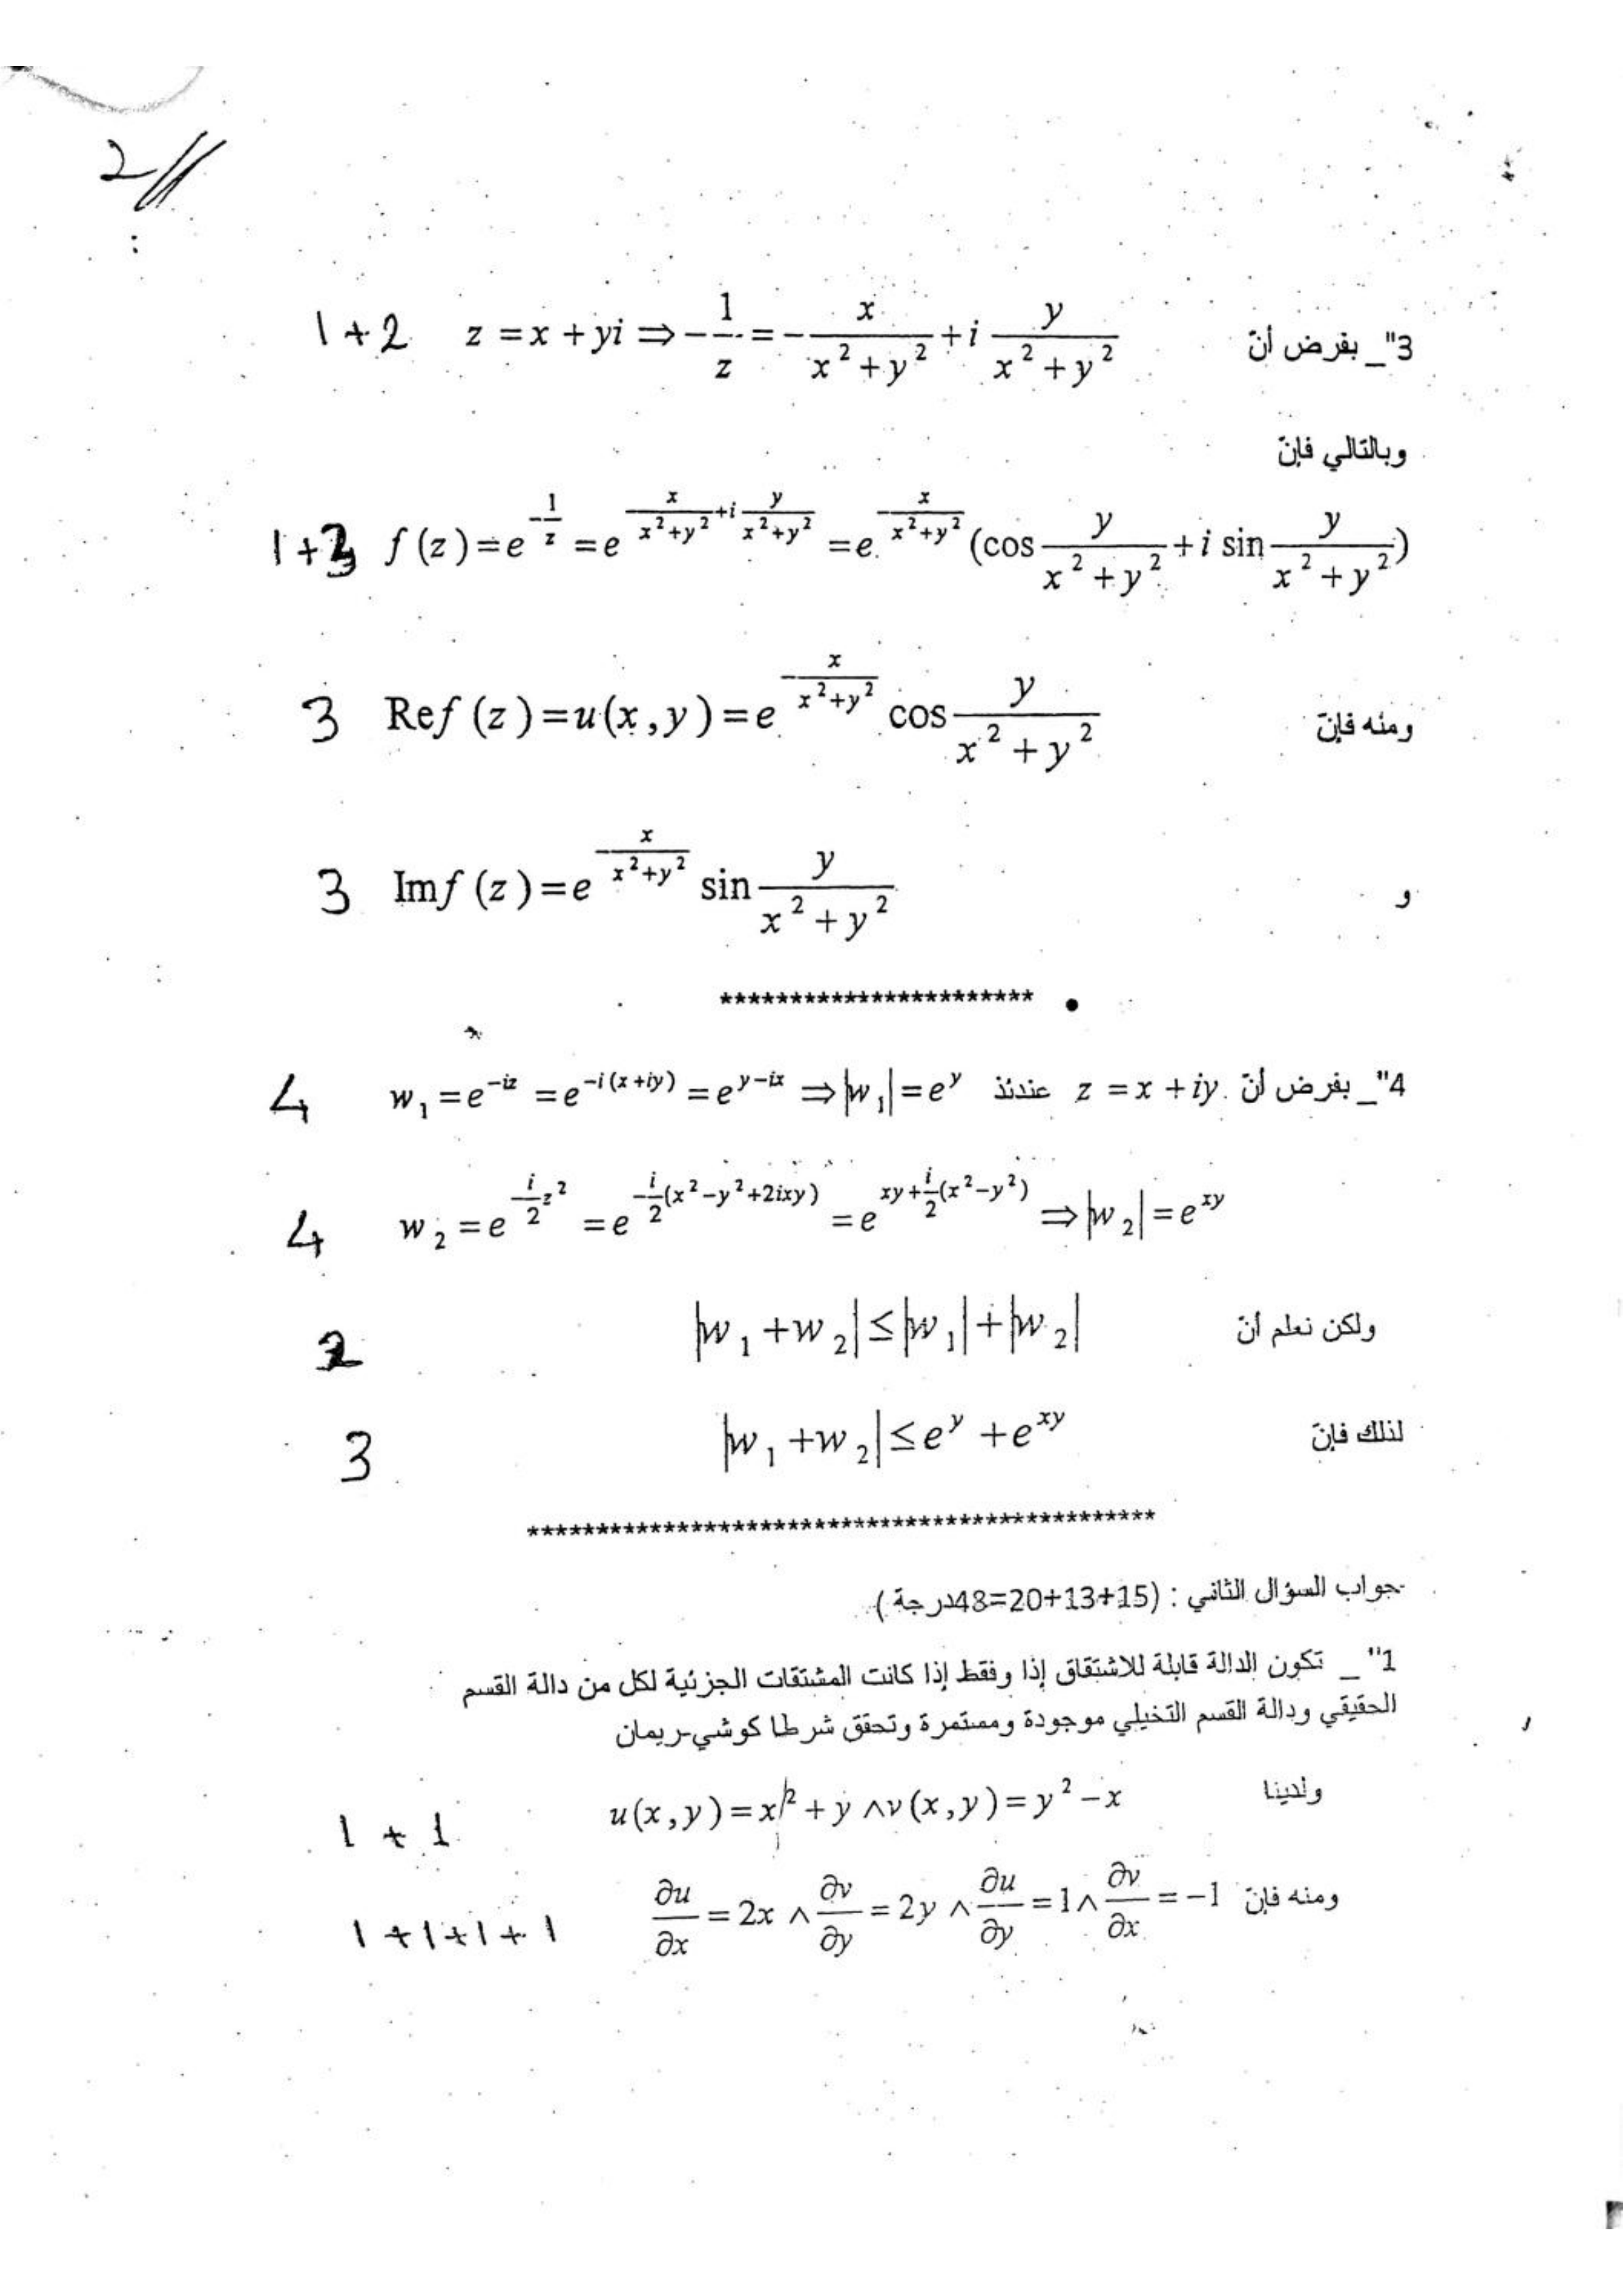 2
3"_ بفرض أنّ z = x + yi ⇒ -1/z = -x/(x²+y²) + i y/(x²+y²) 1+2
وبالتالي فإنّ
1+3 f(z) = e^(-1/z) = e^(-x/(x²+y²) + i y/(x²+y²)) = e^(-x/(x²+y²)) (cos y/(x²+y²) + i sin y/(x²+y²))
ومنه فإنّ Re f(z) = u(x,y) = e^(-x/(x²+y²)) cos y/(x²+y²) 3
و Im f(z) = e^(-x/(x²+y²)) sin y/(x²+y²) 3
***********************
4"_ بفرض أنّ z = x + iy عندئذ w₁ = e^(-iz) = e^(-i(x+iy)) = e^(y-ix) ⇒ |w₁| = e^y 4
4 w₂ = e^(-(i/2)z²) = e^(-(i/2)(x²-y²+2ixy)) = e^(xy+(i/2)(x²-y²)) ⇒ |w₂| = e^(xy)
ولكن نعلم أنّ |w₁+w₂| ≤ |w₁|+|w₂| 2
لذلك فإنّ |w₁+w₂| ≤ e^y + e^(xy) 3
**********************************************
جواب السؤال الثاني : (15+13+20=48درجة )
1"_ تكون الدالة قابلة للاشتقاق إذا وفقط إذا كانت المشتقات الجزئية لكل من دالة القسم
الحقيقي ودالة القسم التخيلي موجودة ومستمرة وتحقق شرطا كوشي-ريمان
ولدينا u(x,y) = x² + y ∧ v(x,y) = y² - x 1+1
ومنه فإنّ ∂u/∂x = 2x ∧ ∂v/∂y = 2y ∧ ∂u/∂y = 1 ∧ ∂v/∂x = -1 1+1+1+1